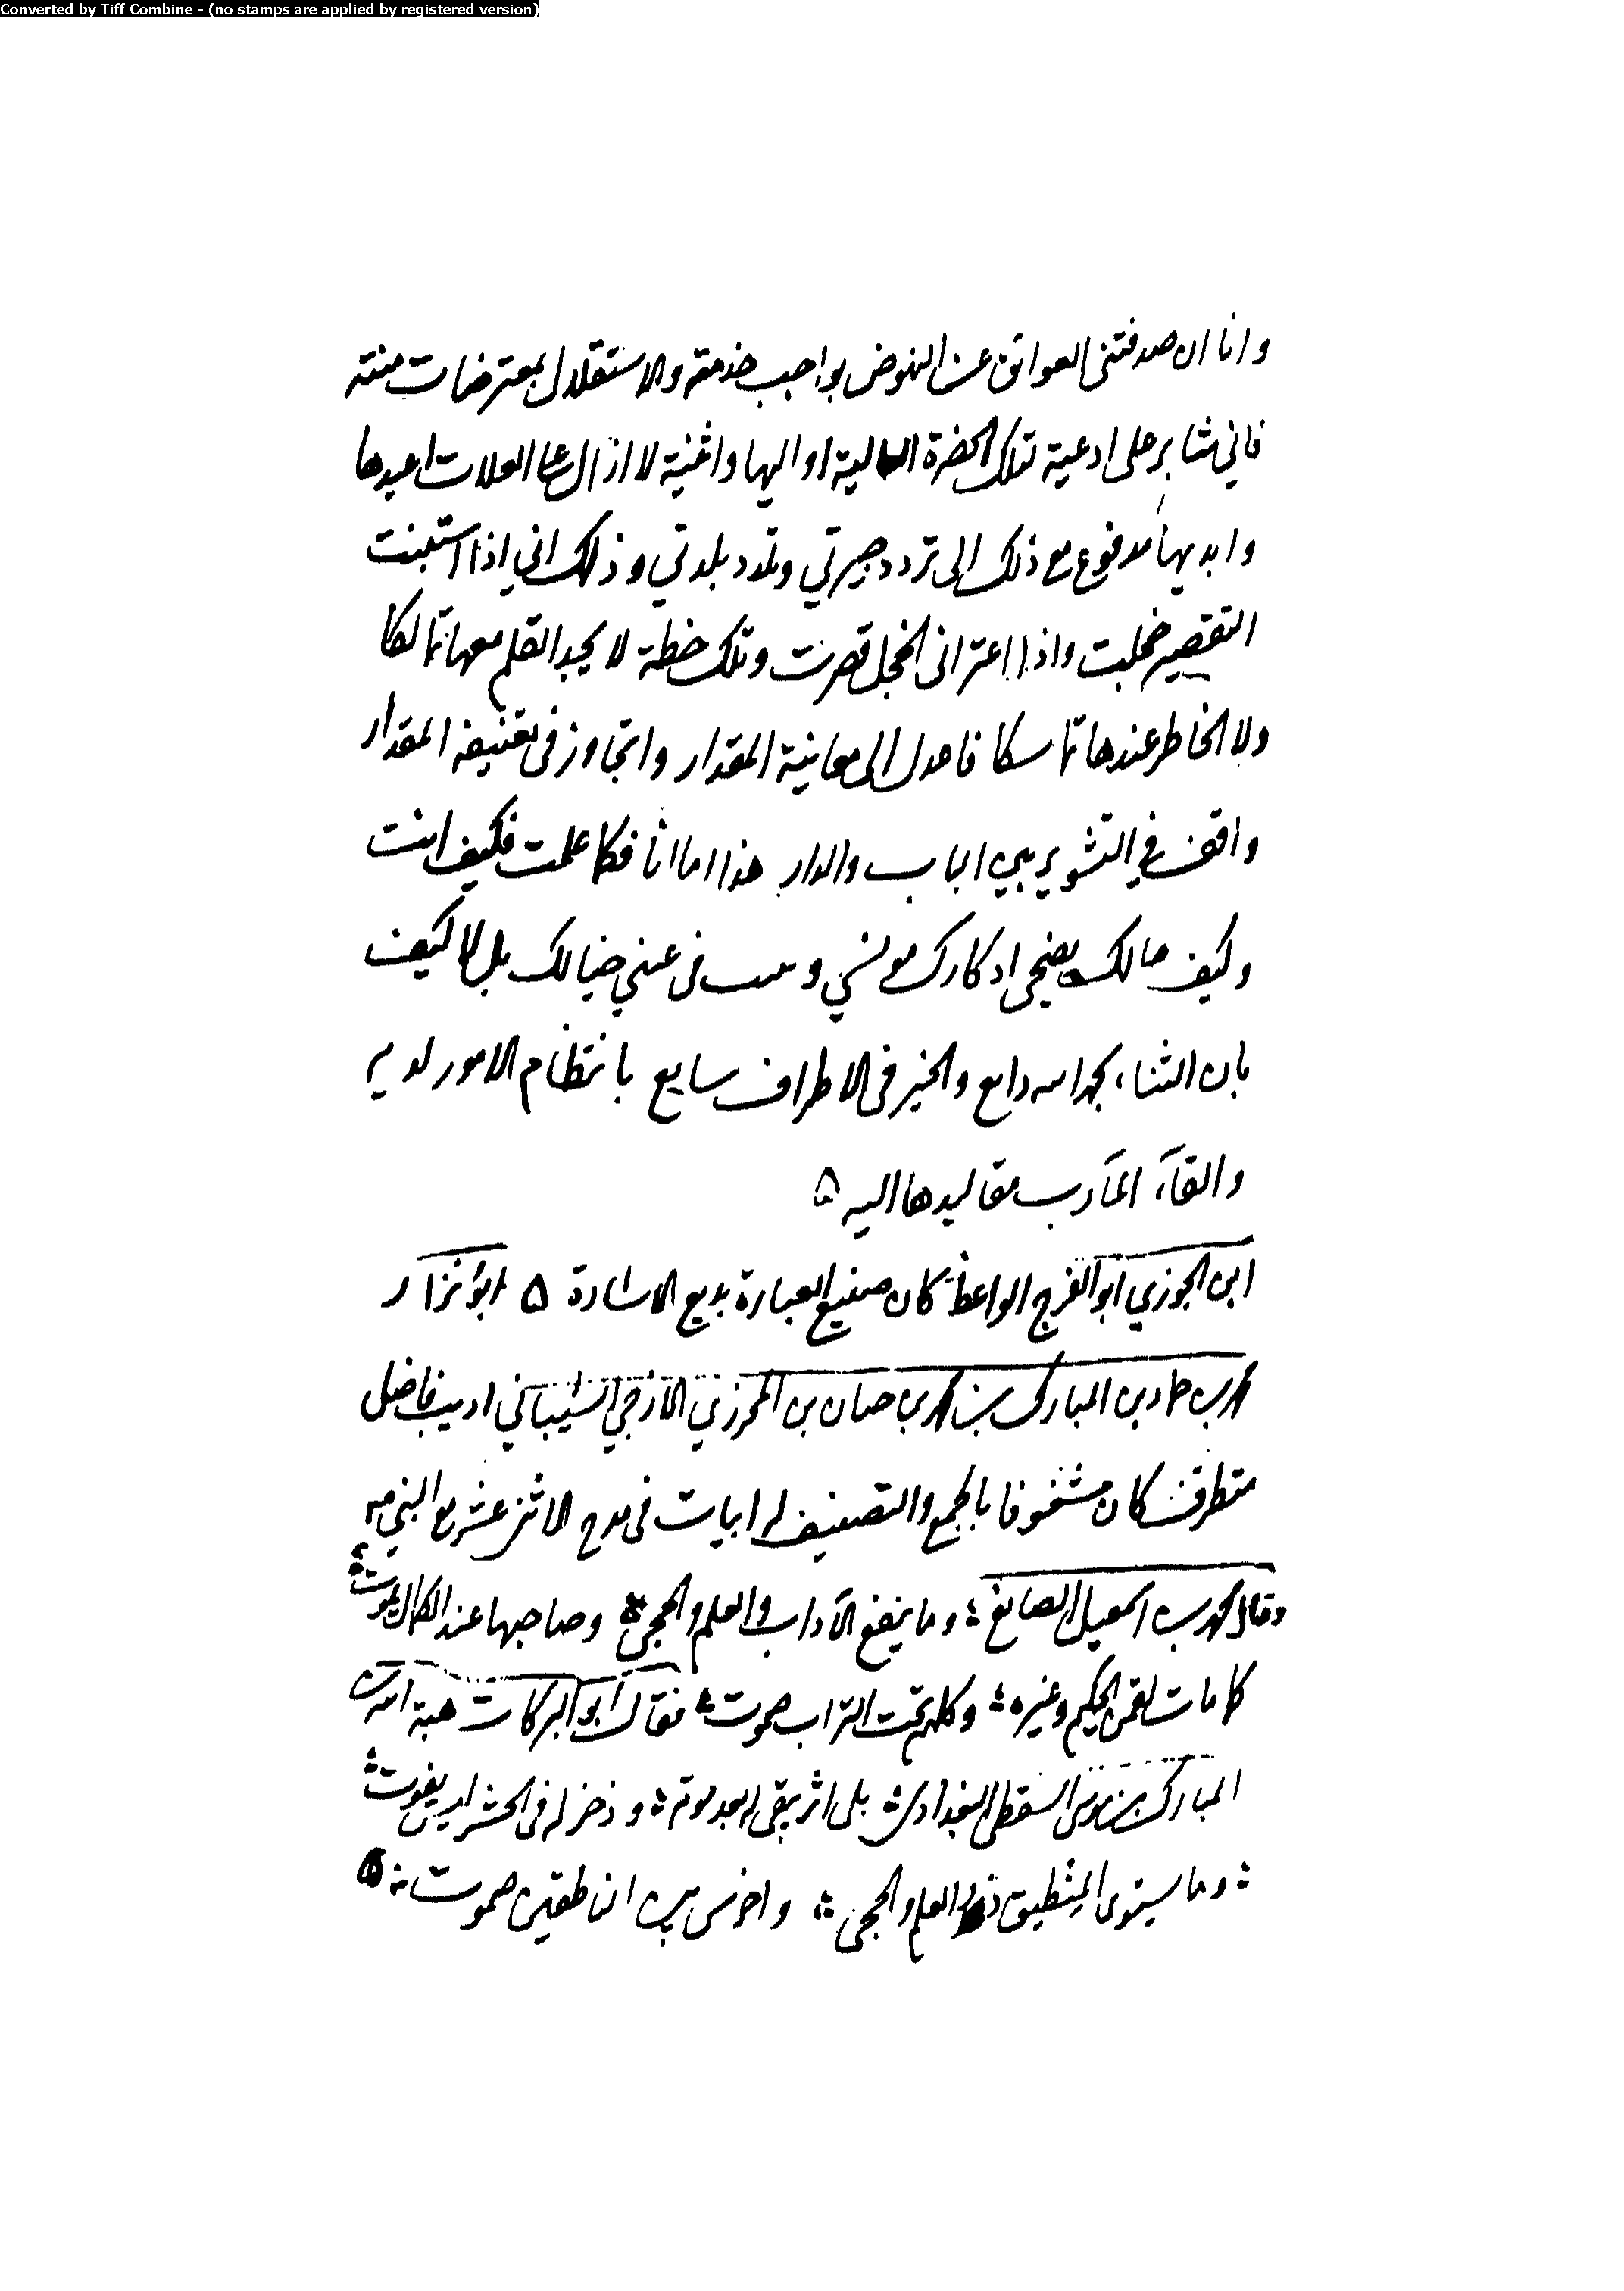 Converted by Tiff Combine - (no stamps are applied by registered version)
وانا ان صدفتنى العوائق عن النهوض بواجب خدمته والاستقلال بمعترضات منته
فاني مثابر على ادعية تلك الحضرة العالية اواليها واثنية لا ازال على العلات اعيدها
وابديها مدفوع مع ذلك الى تردد حيرتي وتلدد بلدتي وذلك اني اذا استبنت
التقصير خجلت واذا اعترانى الخجل قصرت وتلك خطة لا يجد القلم معها تمالكا
ولا الخاطر عندها تماسكا فاعدل الى معاينة المقدار واتجاوز فى تعنيفه المقدار
واقف في التشوير بين الباب والدار هذا اما انا فكما علمت فكيف انت
وكيف حالك يضحى ادكارك مونسي فى عيني خيالك بل لا كيف
بان الثناء بحمد الله والخير فى الاطراف بانتظام الامور لديه
والقاء المآرب مقاليدها اليه ه
ابن الجوزي ابو الفرج الواعظ كان العبارة بديع الاشارة ه ابو نزار
محمد بن حماد بن المبارك بن محمد بن حسان بن المحرزي الازجي الشيباني اديب فاضل
متطرف كان مشغوفا بالجمع والتصنيف له ابيات فى مدح الاثنى عشر مع النبي ص
وقال محمد بن اسمعيل الصايغ وما ينفع الآداب والعلم والحجى وصاحبها عند الكمال يموت
كما مات لقمن الحكيم وغيره وكلهم تحت التراب صموت فقال ابو البركات هبة الله بن
المبارك بن موسى السقطى البغدادى بلى اثر يبقى له بعد موته وذخر له فى الحشر ليس يفوت
وما يستوى المنطيق ذو العلم والحجى واخرس بين الناطقين صموت ه